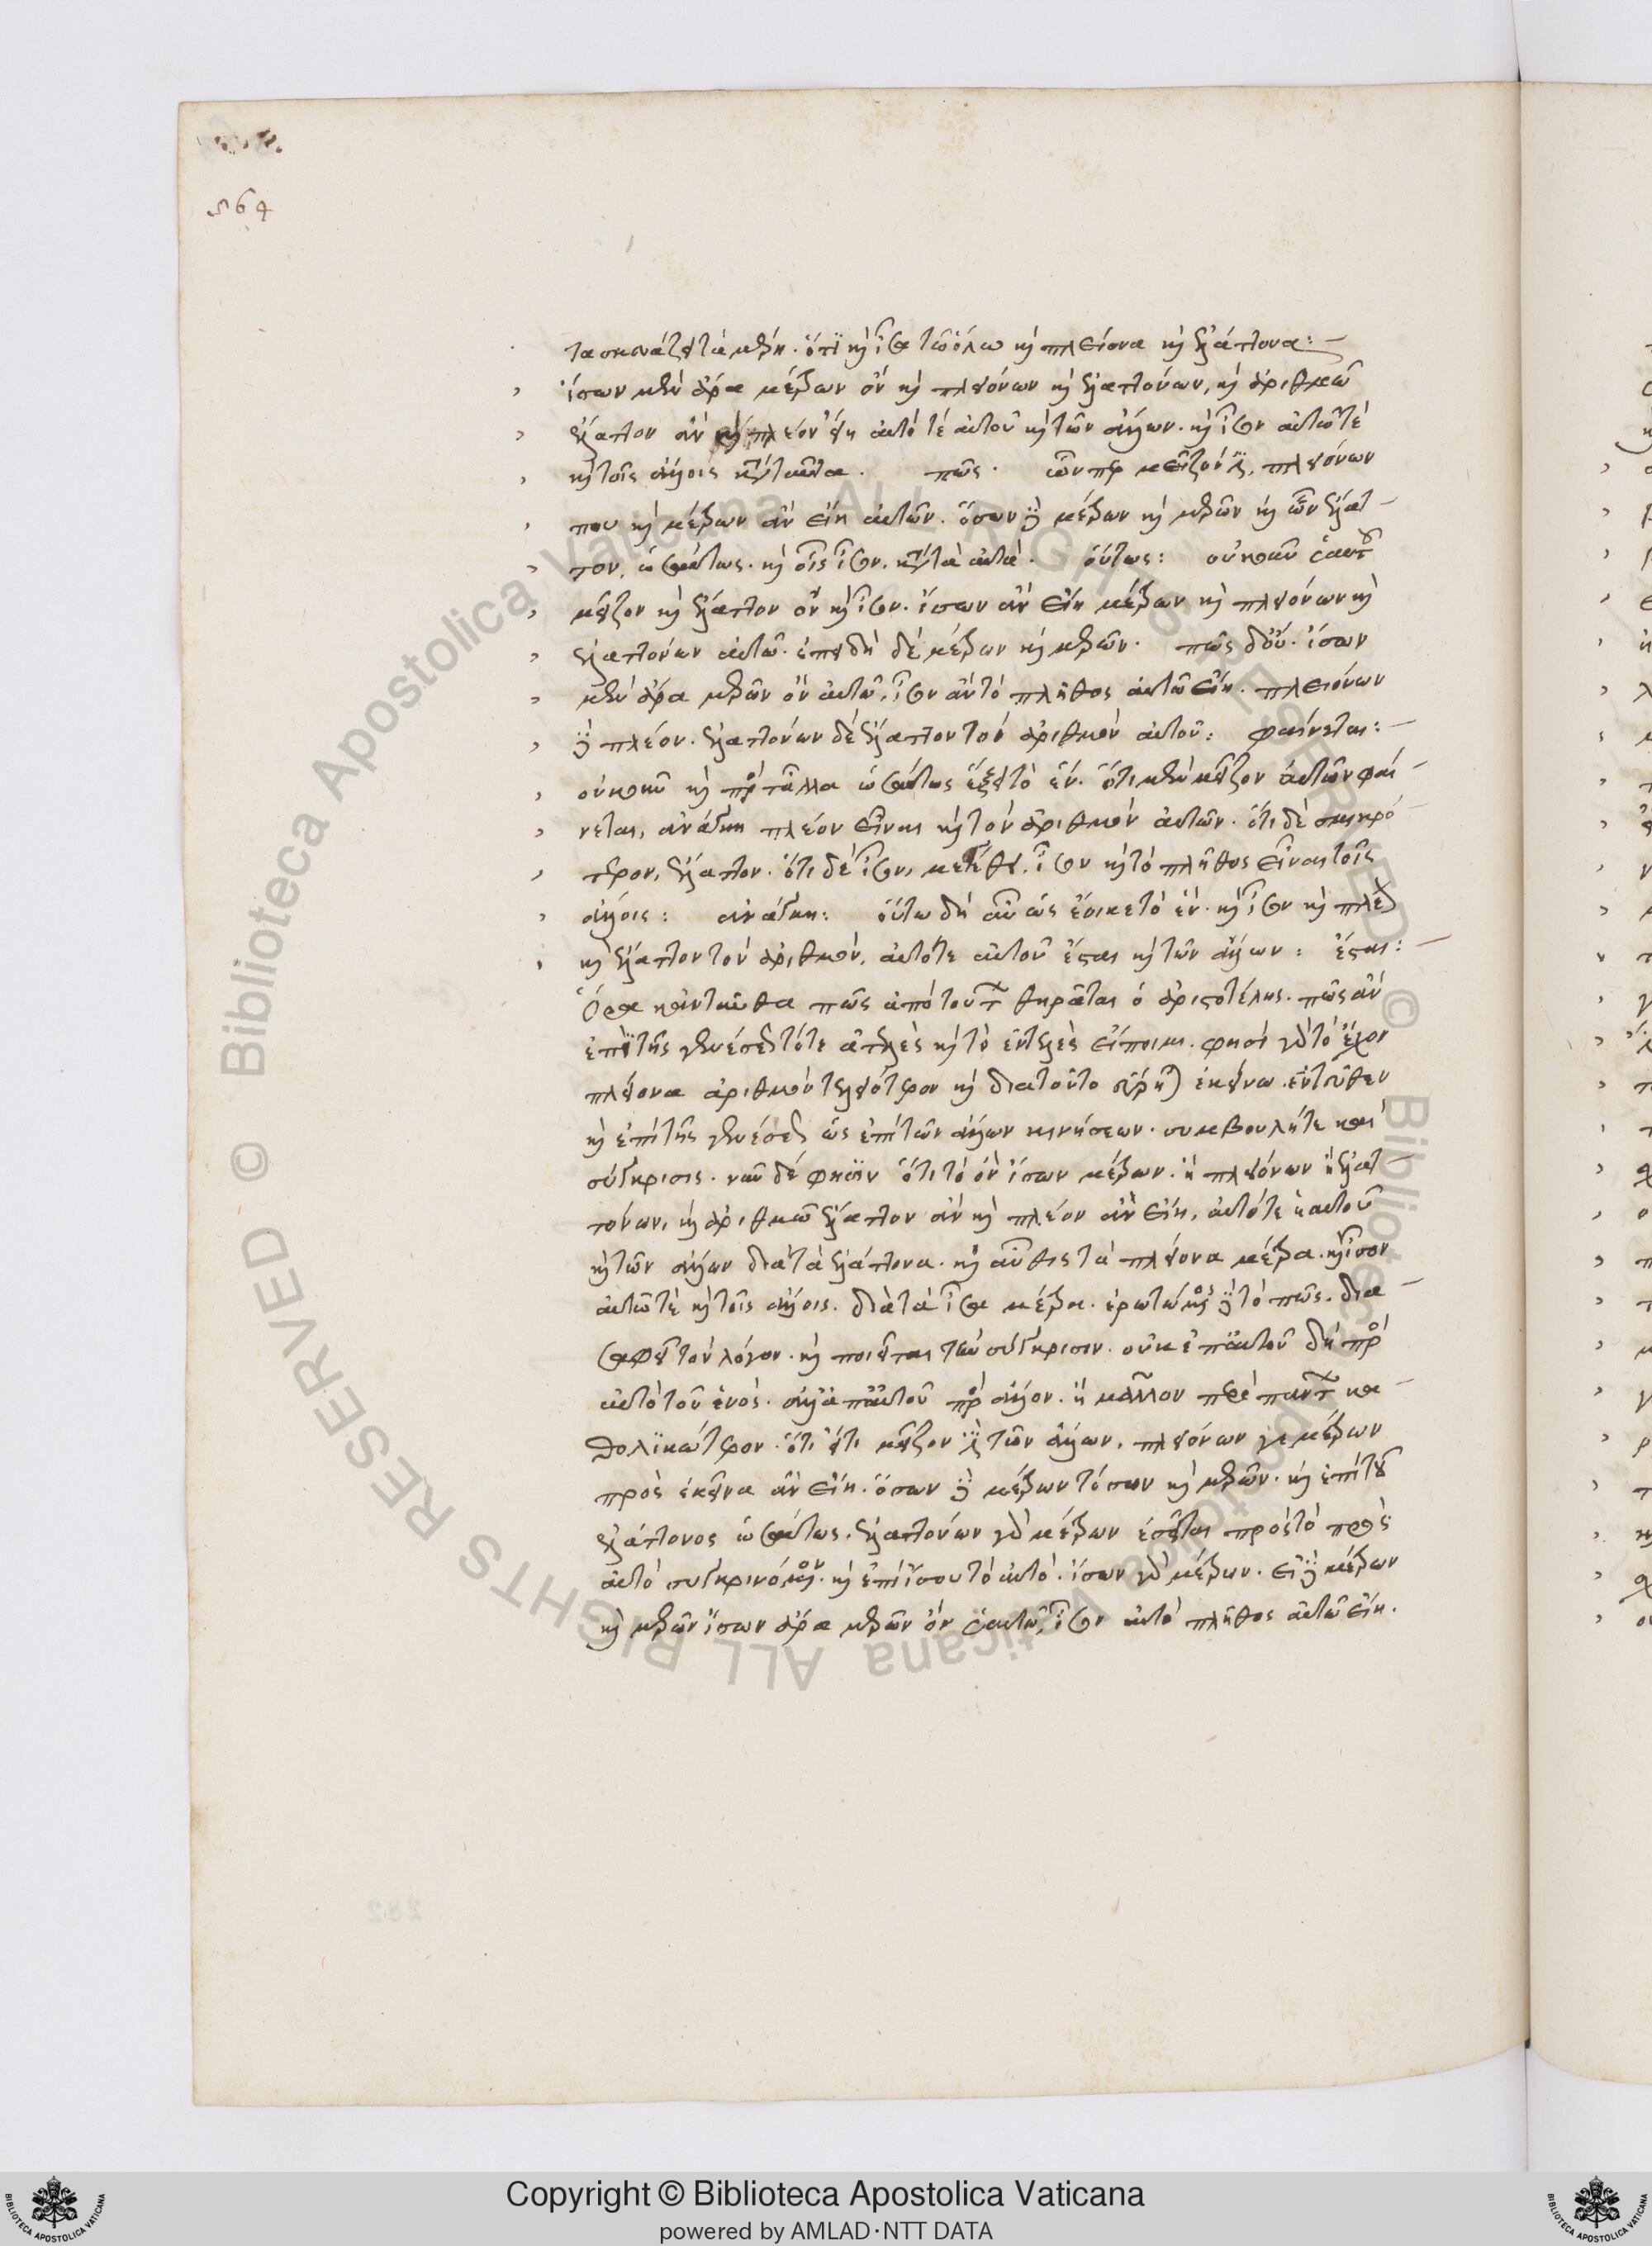 564
τασκευάζει τὰ μέτρη. ὅτι καὶ ἴσα τῶ ὅλω καὶ πλείονα καὶ ἐλάττονα:
ἴσων μὲν ἄρα μέτρων ὂν καὶ πλειόνων καὶ ἐλαττόνων, καὶ ἀριθμῶ
ἔλαττον ἂν καὶ πλέον εἴη αὐτό τε αὑτοῦ καὶ τῶν ἄλλων. καὶ ἴσον αὑτῶ τὲ
καὶ τοῖς ἄλλοις κατὰ ταῦτα. πῶς. ὧνπερ μεῖζόν ἐστι, πλειόνων
που καὶ μέτρων ἂν εἴη αὐτῶν. ὅσων δὲ μέτρων καὶ μερῶν καὶ ὧν ἔλατ-
τον, ὡσαύτως. καὶ οἷς ἴσον, κατὰ τὰ αὐτά. οὕτως: οὐκοῦν ἑαυτοῦ
μεῖζον καὶ ἔλαττον ὂν καὶ ἴσον. ἴσων ἂν εἴη μέτρων καὶ πλειόνων καὶ
ἐλαττόνων αὑτῶ. ἐπειδὴ δὲ μέτρων καὶ μερῶν. πῶς δ' οὔ. ἴσων
μὲν ἄρα μερῶν ὂν αὑτῶ, ἴσον ἂν τὸ πλῆθος αὑτῶ εἴη. πλειόνων
δὲ πλέον. ἐλαττόνων δὲ ἔλαττον τὸν ἀριθμὸν αὑτοῦ: φαίνεται:
οὐκοῦν καὶ πρὸς τἆλλα ὡσαύτως ἕξει τὸ ἕν. ὅτι μὲν μεῖζον αὐτῶν φαί-
νεται, ἀνάγκη πλέον εἶναι καὶ τὸν ἀριθμὸν αὐτῶν. ὅτι δὲ σμικρό
τερον, ἔλαττον. ὅτι δὲ ἴσον μεγέθει, ἴσον καὶ τὸ πλῆθος εἶναι τοῖς
ἄλλοις: ἀνάγκη: οὕτω δὴ αὖ ὡς ἔοικε τὸ ἕν. καὶ ἴσον καὶ πλέον
καὶ ἔλαττον τὸν ἀριθμὸν, αὐτό τε αὑτοῦ ἔσται καὶ τῶν ἄλλων: ἔσται:
Ὅρα κἀνταῦθα πῶς ἀπὸ τούτων θηρᾶται ὁ ἀριστοτέλης. πῶς ἂν
ἐπὶ τῆς γενέσεως τό τε ἀτελὲς καὶ τὸ ἐντελὲς εἴποιμι. φησὶ γὰρ τὸ ἔχον
πλείονα ἀριθμὸν τελειότερον καὶ διατοῦτο εὕρηται ἐκείνω ἐντεῦθεν
καὶ ἐπὶ τῆς γενέσεως ὡς ἐπὶ τῶν ἄλλων κινήσεων. συμβουλή τε καὶ
σύγκρισις. νῦν δὲ φησὶν ὅτι τὸ ὂν ἴσων μέτρων. ἢ πλειόνων ἢ ἐλατ-
τόνων, καὶ ἀριθμῶ ἔλαττον ἂν καὶ πλέον ἂν εἴη, αὐτό τε ἑαυτοῦ
καὶ τῶν ἄλλων διὰ τὰ ἐλάττονα. καὶ αὖθις τὰ πλείονα μέτρα. καὶ ἴσον
αὑτῶ τὲ καὶ τοῖς ἄλλοις. διὰ τὰ ἴσα μέτρα. ἐρωτώμενος δὲ τὸ πῶς. δια-
σαφεῖ τὸν λόγον. καὶ ποιεῖται τὴν σύγκρισιν. οὐκ ἐπ' αὐτοῦ δὴ πρὸς
αὐτὸ τοῦ ἑνός. ἀλλ' ἀπ' αὐτοῦ πρὸς ἄλλον. ἢ μᾶλλον πρὸς πάντων κα-
θολικώτερον. ὅτι εἴτι μεῖζον ἐστι τῶν ἄλλων, πλειόνων γε μέτρων
πρὸς ἐκεῖνα ἂν εἴη. ὅσων δὲ μέτρων τόσων καὶ μερῶν. καὶ ἐπὶ τοῦ
ἐλάττονος ὡσαύτως. ἐλαττόνων γὰρ μέτρων ἐσεῖται πρὸς τὸ πρὸς
αὐτὸ συγκρινόμενον. καὶ ἐπὶ ἴσου τὸ αὐτό. ἴσων γὰρ μέτρων. εἰ δὲ μέτρων
καὶ μερῶν ἴσων ἄρα μερῶν ὂν ἑαυτῶ, ἴσον αὐτὸ πλῆθος αὑτῶ εἴη.
Copyright © Biblioteca Apostolica Vaticana
powered by AMLAD·NTT DATA